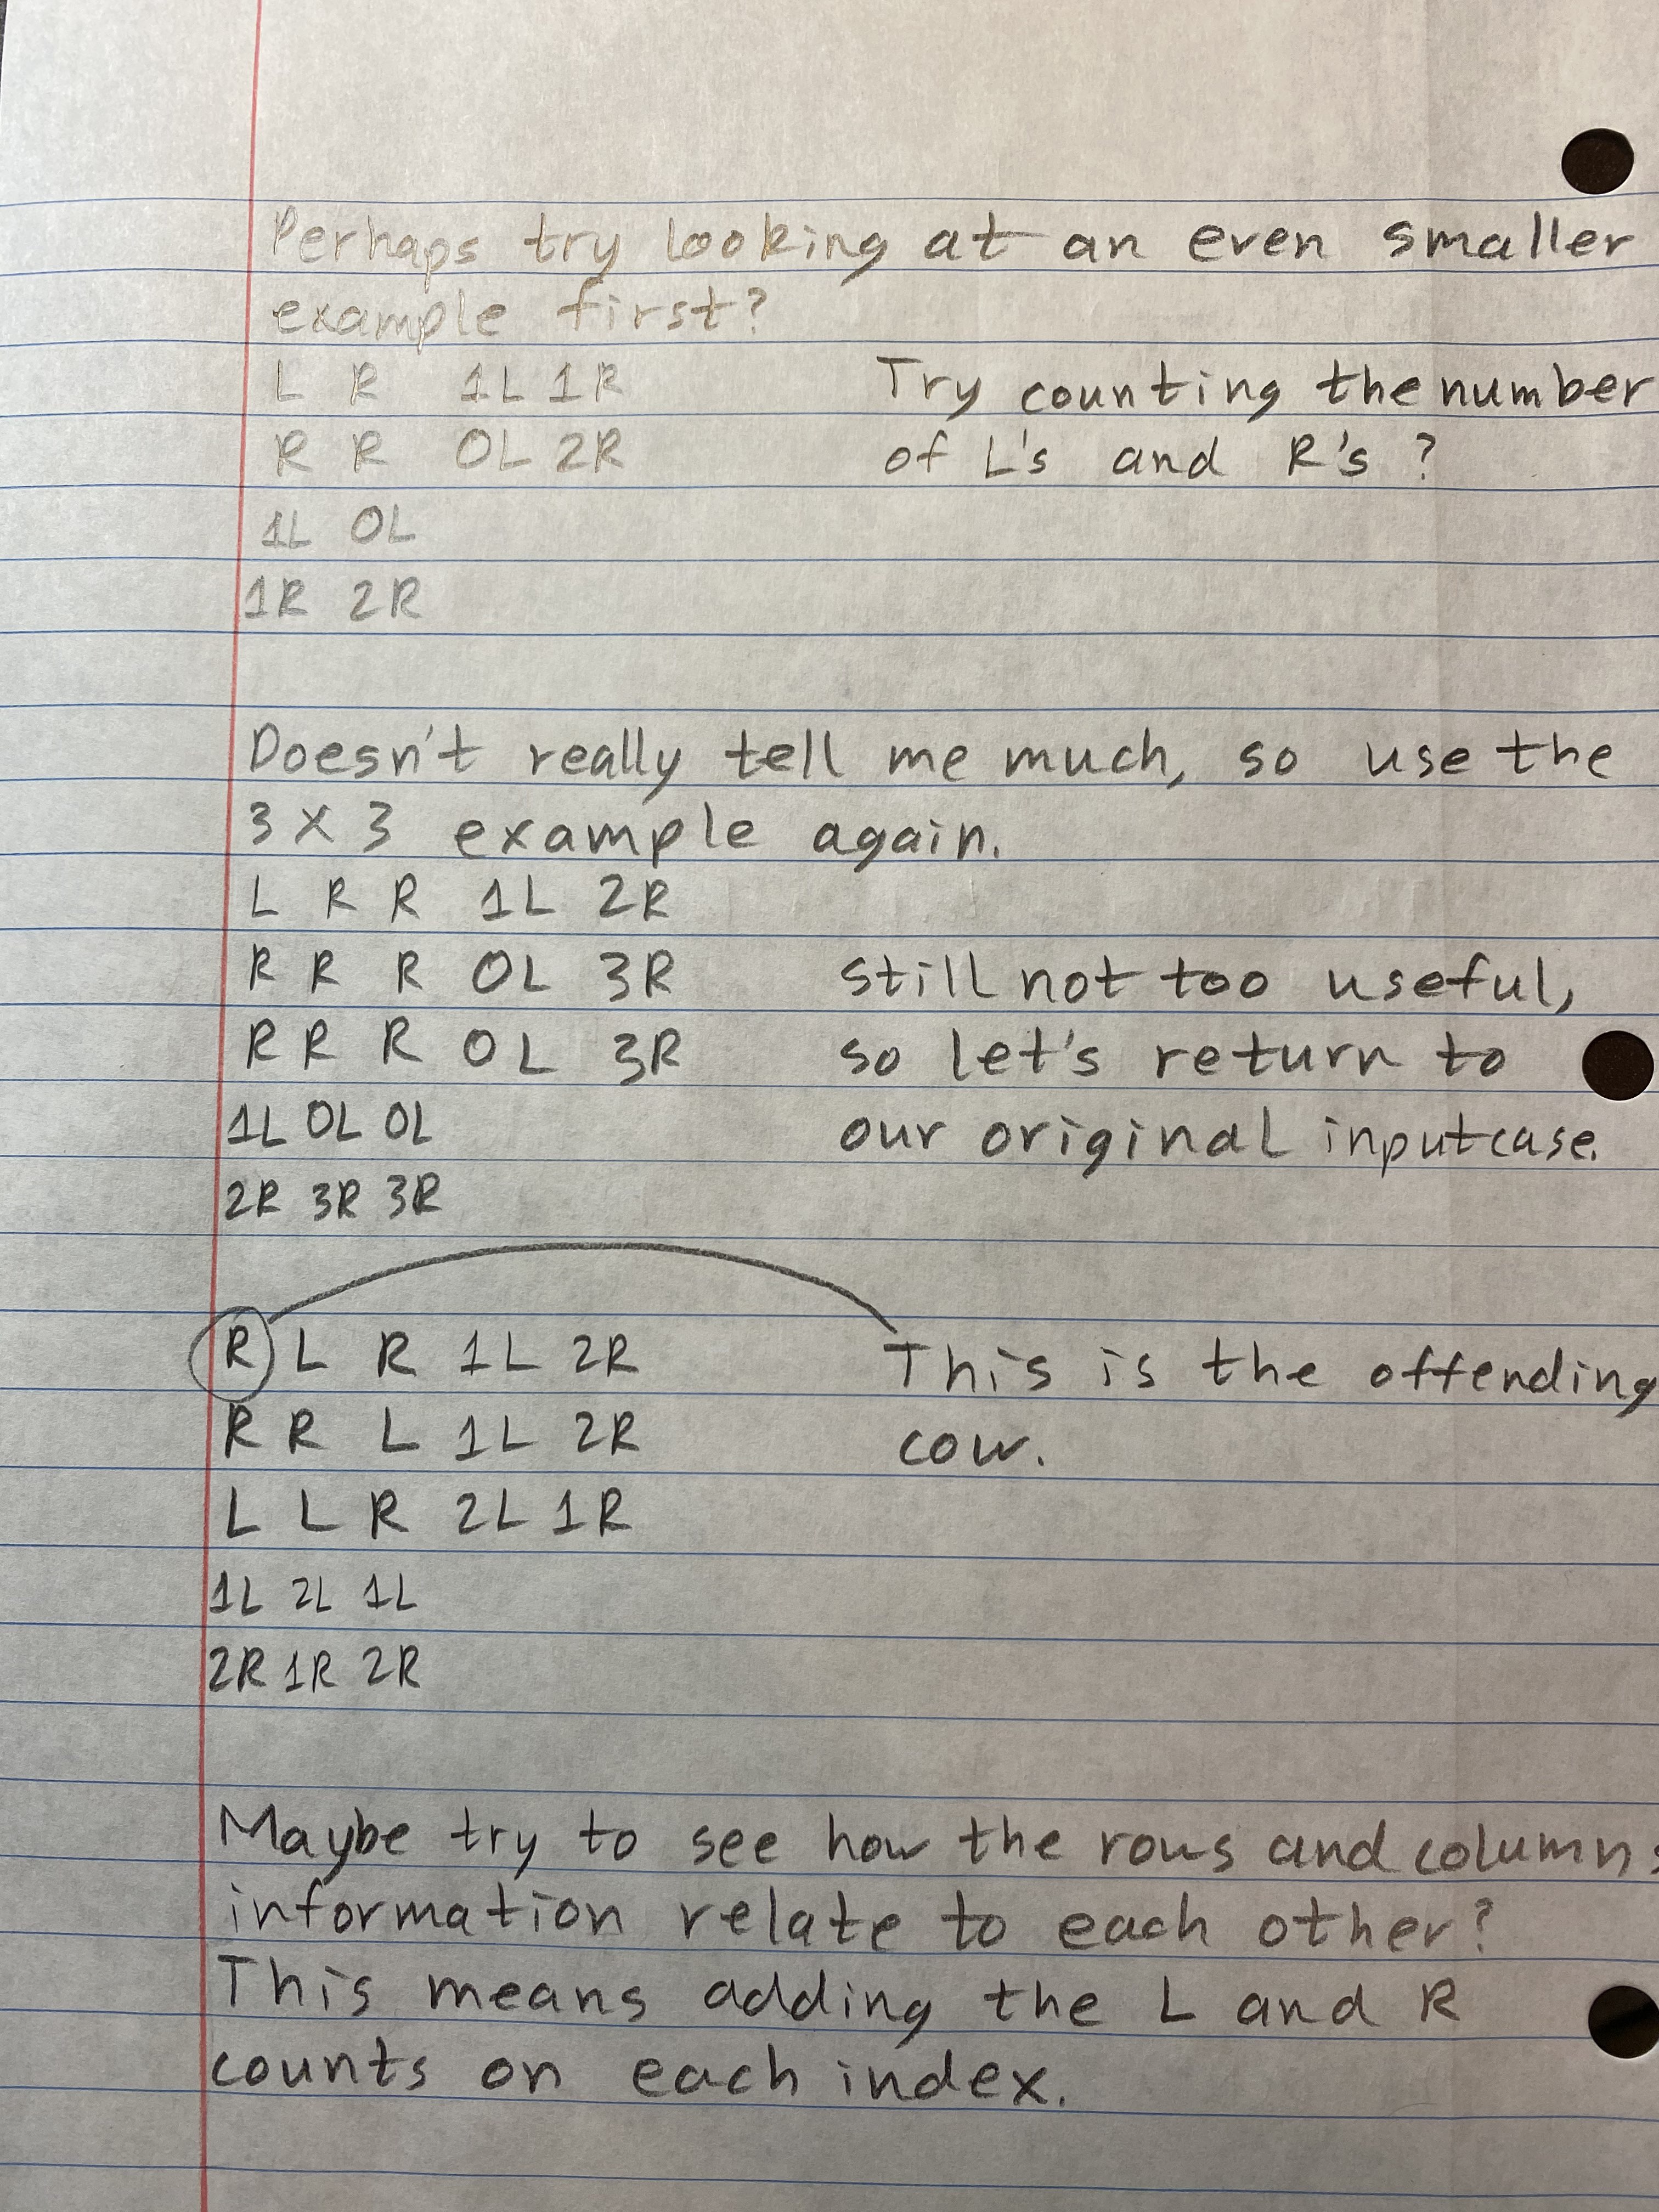 Perhaps try looking at an even smaller
example first?
L R 1L 1R
R R 0L 2R
1L 0L
1R 2R
Try counting the number
of L's and R's ?
Doesn't really tell me much, so use the
3 X 3 example again.
L R R 1L 2R
R R R 0L 3R
R R R 0L 3R
1L 0L 0L
2R 3R 3R
still not too useful,
so let's return to
our original input case.
R L R 1L 2R
R R L 1L 2R
L L R 2L 1R
1L 2L 1L
2R 1R 2R
This is the offending
cow.
Maybe try to see how the rows and columns
information relate to each other?
This means adding the L and R
counts on each index.